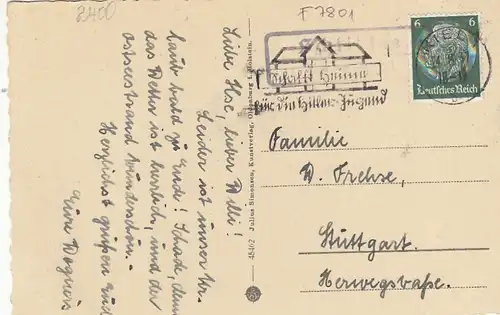 2400
F 7801
Liebe Ilse, lieber Willi!
Leider ist unser Ur-
laub bald zu Ende! Schade, denn
das Wetter ist herrlich, und der
Ostseestrand wunderschön.
Herzlichst grüßen Euch
Eure Wagners
45462 Julius Simonsen, Kunstverlag, Oldenburg i. Holstein.
Schafft Heime
für die Hitler-Jugend
6 6
Deutsches Reich
KIEL
Familie
W. Frehse,
Stuttgart.
Herwegstraße.